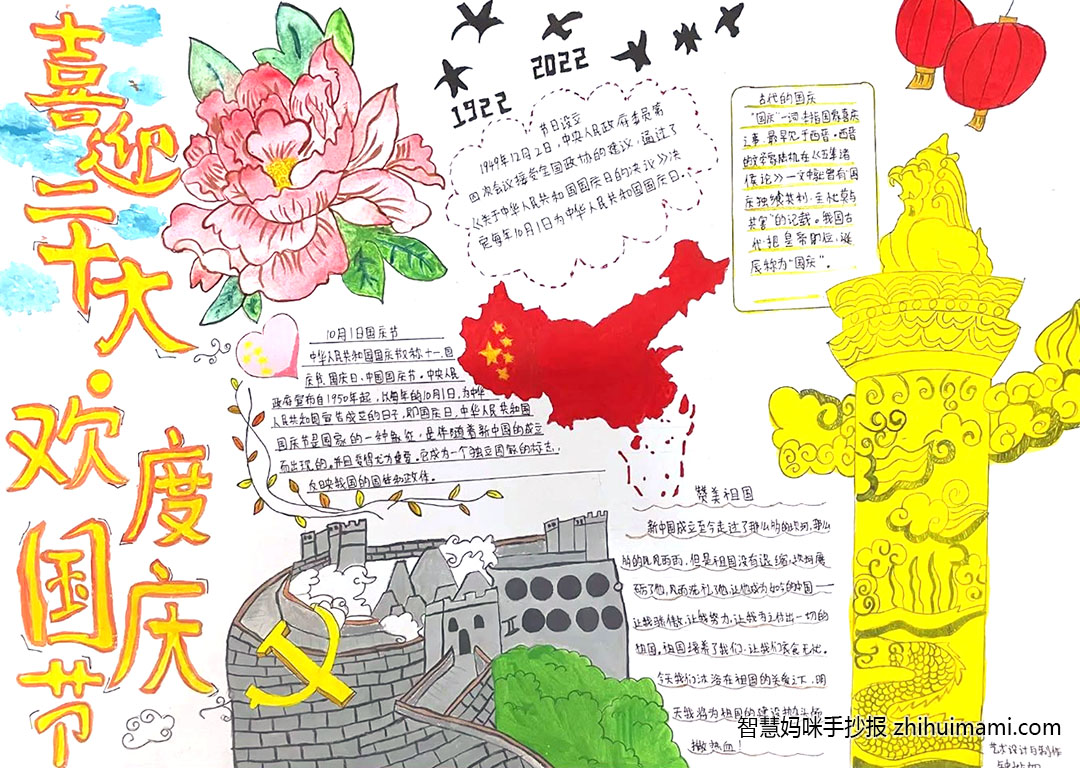 喜迎二十大·
欢度
国庆
节
1922
2022
节日设立
1949年12月2日，中央人民政府委员第
四次会议接受全国政协的建议，通过了
《关于中华人民共和国国庆日的决议》决
定每年10月1日为中华人民共和国国庆日.
古代的国庆
"国庆"一词本指国家喜庆
之事.最早见于西晋。西晋
的文学家陆机在《五等诸
侯论》一文中就曾有"国
庆独飨其利，主忧莫与
其害"的记载。我国古
代把皇帝即位、诞
辰称为"国庆"。
10月1日国庆节
中华人民共和国国庆节又称十一、国
庆节、国庆日、中国国庆节。中央人民
政府宣布自1950年起，以每年的10月1日，为中华
人民共和国宣告成立的日子，即国庆日.中华人民共和国
国庆节是国家的一种象征，是伴随着新中国的成立
而出现的，并且变得尤为重要。它成为一个独立国家的标志，
反映我国的国体和政体。
赞美祖国
新中国成立至今走过了那么多的坎坷，那么
多的风风雨雨，但是祖国没有退缩，坎坷
让我骄傲，让我努力，让我为之付出一切的
祖国。祖国培养了我们，让我们
今天我们沐浴在祖国的关爱之下，明
天我将为祖国的建设抛头颅
洒热血！
智慧妈咪手抄报 zhihuimami.com
艺术设计与制作